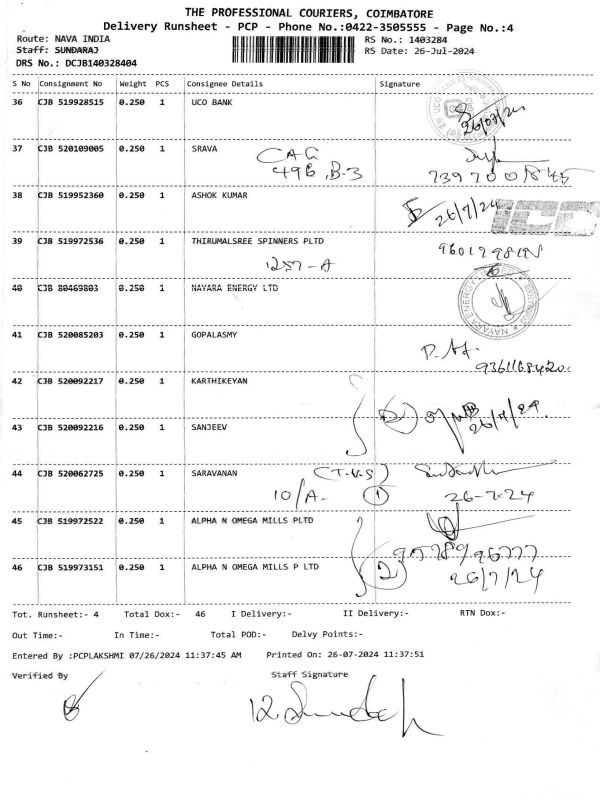 THE PROFESSIONAL COURIERS, COIMBATORE
Delivery Runsheet - PCP - Phone No.:0422-3505555 - Page No.:4
Route: NAVA INDIA RS No.: 1403284
Staff: SUNDARAJ RS Date: 26-Jul-2024
DRS No.: DCJB140328404
S No Consignment No Weight PCS Consignee Details Signature
36 CJB 519928515 0.250 1 UCO BANK
26/07/24
37 CJB 520109005 0.250 1 SRAVA CAG
496, B-3
38 CJB 519952360 0.250 1 ASHOK KUMAR
26/7/24
39 CJB 519972536 0.250 1 THIRUMALSREE SPINNERS PLTD
1257-A
40 CJB 80469803 0.250 1 NAYARA ENERGY LTD
41 CJB 520085203 0.250 1 GOPALASMY
9361168420
42 CJB 520092217 0.250 1 KARTHIKEYAN
2 26/7/24.
43 CJB 520092216 0.250 1 SANJEEV
44 CJB 520062725 0.250 1 SARAVANAN (T.V.S)
10/A. 1 26-7-24
45 CJB 519972522 0.250 1 ALPHA N OMEGA MILLS PLTD
46 CJB 519973151 0.250 1 ALPHA N OMEGA MILLS P LTD 2 26/7/24
Tot. Runsheet:- 4 Total Dox:- 46 I Delivery:- II Delivery:- RTN Dox:-
Out Time:- In Time:- Total POD:- Delvy Points:-
Entered By :PCPLAKSHMI 07/26/2024 11:37:45 AM Printed On: 26-07-2024 11:37:51
Verified By Staff Signature